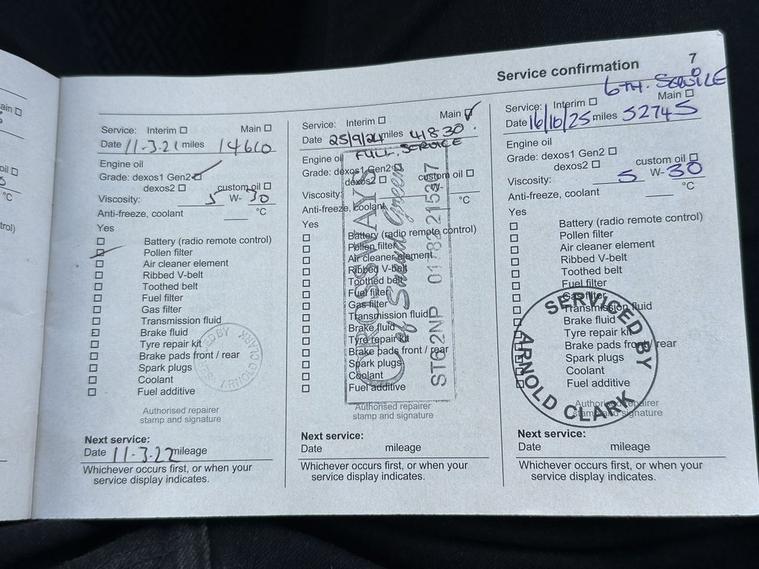 7
Service confirmation
6TH. SERVICE
ain
oil
°C
trol)
Service: Interim Main
Date 11-3.21 miles 14610
Engine oil
Grade: dexos1 Gen2
dexos2 custom oil
Viscosity: 5 W- 30
Anti-freeze, coolant °C
Yes
Battery (radio remote control)
Pollen filter
Air cleaner element
Ribbed V-belt
Toothed belt
Fuel filter
Gas filter
Transmission fluid
Brake fluid
Tyre repair kit
Brake pads front / rear
Spark plugs
Coolant
Fuel additive
ARNOLD CLARK
Authorised repairer
stamp and signature
Next service:
Date 11-3.22 mileage
Whichever occurs first, or when your
service display indicates.
Service: Interim Main
Date 25/9/24 miles 41830.
FULL. SERVICE
Engine oil
Grade: dexos1 Gen2
dexos2 custom oil
Viscosity:
Anti-freeze, coolant °C
Yes
Battery (radio remote control)
Pollen filter
Air cleaner element
Ribbed V-belt
Toothed belt
Fuel filter
Gas filter
Transmission fluid
Brake fluid
Tyre repair kit
Brake pads front / rear
Spark plugs
Coolant
Fuel additive
Authorised repairer
stamp and signature
Next service:
Date mileage
Whichever occurs first, or when your
service display indicates.
Service: Interim Main
Date 16/10/25 miles 52745
Engine oil
Grade: dexos1 Gen2
dexos2 custom oil
Viscosity: 5 W- 30
Anti-freeze, coolant °C
Yes
Battery (radio remote control)
Pollen filter
Air cleaner element
Ribbed V-belt
Toothed belt
Fuel filter
Gas filter
Transmission fluid
Brake fluid
Tyre repair kit
Brake pads front / rear
Spark plugs
Coolant
Fuel additive
SERVICED BY
ARNOLD CLARK
Authorised repairer
stamp and signature
Next service:
Date mileage
Whichever occurs first, or when your
service display indicates.